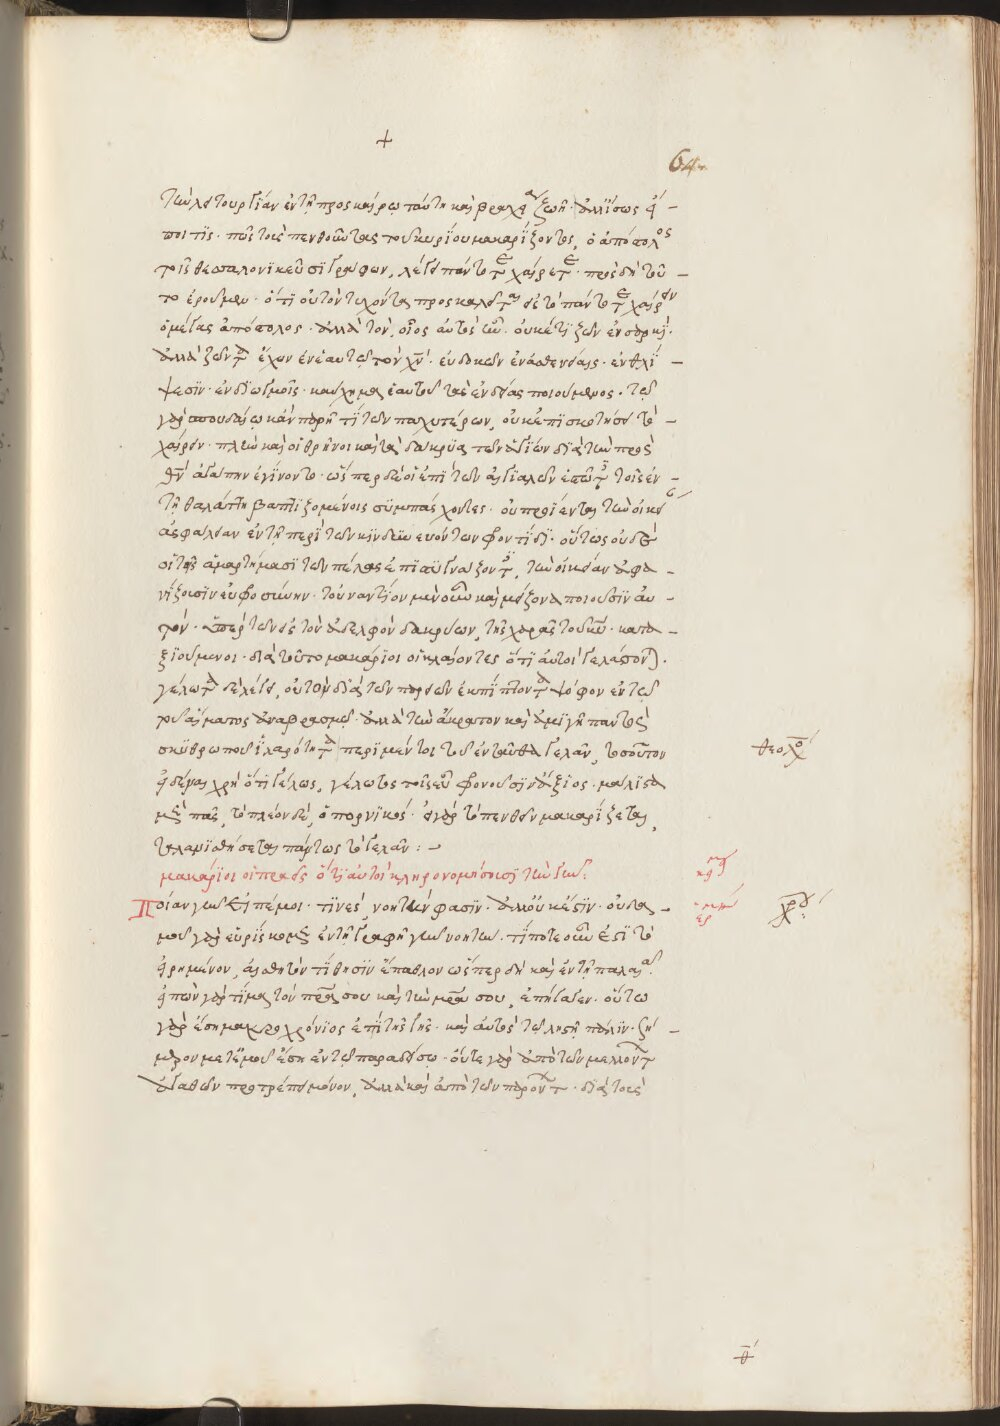 +
64
τὴν λειτουργίαν ἐν τῇ προσκαίρῳ ταύτῃ καὶ βραχείᾳ ζωῇ· ἀλλ' ἴσως εἴ
ποι τις· πῶς τοὺς πενθοῦντας τοῦ κυρίου μακαρίζοντος, ὁ ἀπόστολος
τοῖς θεσσαλονικεῦσι γράφων, λέγει πάντοτε χαίρετε· πρὸς δὴ τοῦ
το ἐροῦμεν· ὅτι οὐ τὸν τυχόντα προσκαλεῖται εἰς τὸ πάντοτε χαίρειν
ὁ μέγας ἀπόστολος· ἀλλὰ τὸν, οἷος αὐτὸς ὢν· οὐκέτι ζῶν ἐν σαρκί·
ἀλλὰ ζῶντα ἔχων ἐν ἑαυτῷ τὸν χν· εὐδοκῶν ἐν ἀσθενείαις· ἐν θλί
ψεσιν· ἐν διωγμοῖς· καύχημα ἑαυτοῦ τὰς ἐνδείας ποιούμενος· τῷ
γὰρ σπουδαίῳ κἂν παρῇ τι τῶν παχυτέρων, οὐκ ἐπισκοτήσει τὸ
χαίρειν· πλεῖν καὶ οἱ θρῆνοι καὶ τὰ δάκρυα τῶν ἁγίων διὰ τὴν πρὸς
θν ἀγάπην ἐγίνοντο· ὥσπερ δὲ οἱ ἐπὶ τῶν αἰγιαλῶν ἑστῶτες τοῖς ἐν
τῇ θαλάττῃ βαπτιζομένοις συμπάσχοντες· οὐ προίενται τὴν οἰκείαν
ἀσφάλειαν ἐν τῇ περὶ τῶν κινδυνευόντων φροντίδι· οὕτως οὐδὲ
οἱ τοῖς ἁμαρτήμασι τῶν πέλας ἐπιστυγνάζοντες, τὴν οἰκείαν ἀφα
νίζουσιν εὐφροσύνην· τοὐναντίον μὲν οὖν καὶ μείζονα ποιοῦσιν αὐ
τήν· ὑπὲρ τῶν εἰς τὸν ἀδελφὸν δακρύων, τῆς χαρᾶς τοῦ κυ κατα
ξιούμενοι· διὰ τοῦτο μακάριοι οἱ κλαίοντες ὅτι αὐτοὶ γελάσονται.
γέλωτα δὲ λέγει, οὐ τὸν διὰ τῶν παρειῶν ἐκπίπτοντα ψόφον ἐν τῷ
τοῦ αἵματος ἀναβρασμῷ· ἀλλὰ τὴν ἄκρατον καὶ ἀμιγῆ παντὸς
σκυθρωποῦ ἱλαρότητα περὶ μέντοι τοῦ ἐνταῦθα γελᾶν, τοσοῦτον
εἰδέναι χρὴ ὅτι γέλως, γέλωτος τοῖς εὖ φρονοῦσιν ἄξιος· μάλιστα
μὲν πᾶς, τὸ πλέον δὲ, ὁ πορνικός· εἰ γὰρ τὸ πενθεῖν μακαρίζεται,
ταλανισθήσεται πάντως τὸ γελᾶν:
θεολόγου
μακάριοι οἱ πραεῖς ὅτι αὐτοὶ κληρονομήσουσι τὴν γῆν:
Ποίαν γῆν εἰπέ μοι· τινὲς, νοητήν φασιν· ἀλλ' οὐκ ἔστιν· οὐδα
μοῦ γὰρ εὑρίσκομεν ἐν τῇ γραφῇ γῆν νοητήν· τί ποτε οὖν ἐστὶ τὸ
εἰρημένον, αἰσθητὸν τίθησιν ἔπαθλον ὥσπερ δὴ καὶ ἐν τῇ παλαιᾷ.
εἰπὼν γὰρ τίμα τὸν πρα σου καὶ τὴν μρα σου, ἐπήγαγεν· οὕτω
γὰρ ἔσῃ μακροχρόνιος ἐπὶ τῆς γῆς· καὶ αὐτὸς τῷ λῃστῇ πάλιν· σή
μερον μετ' ἐμοῦ ἔσῃ ἐν τῷ παραδείσῳ· οὔτε γὰρ ἀπὸ τῶν μελλόντων
ἀγαθῶν προτρέπει μόνον, ἀλλὰ καὶ ἀπὸ τῶν παρόντων· διὰ τοὺς